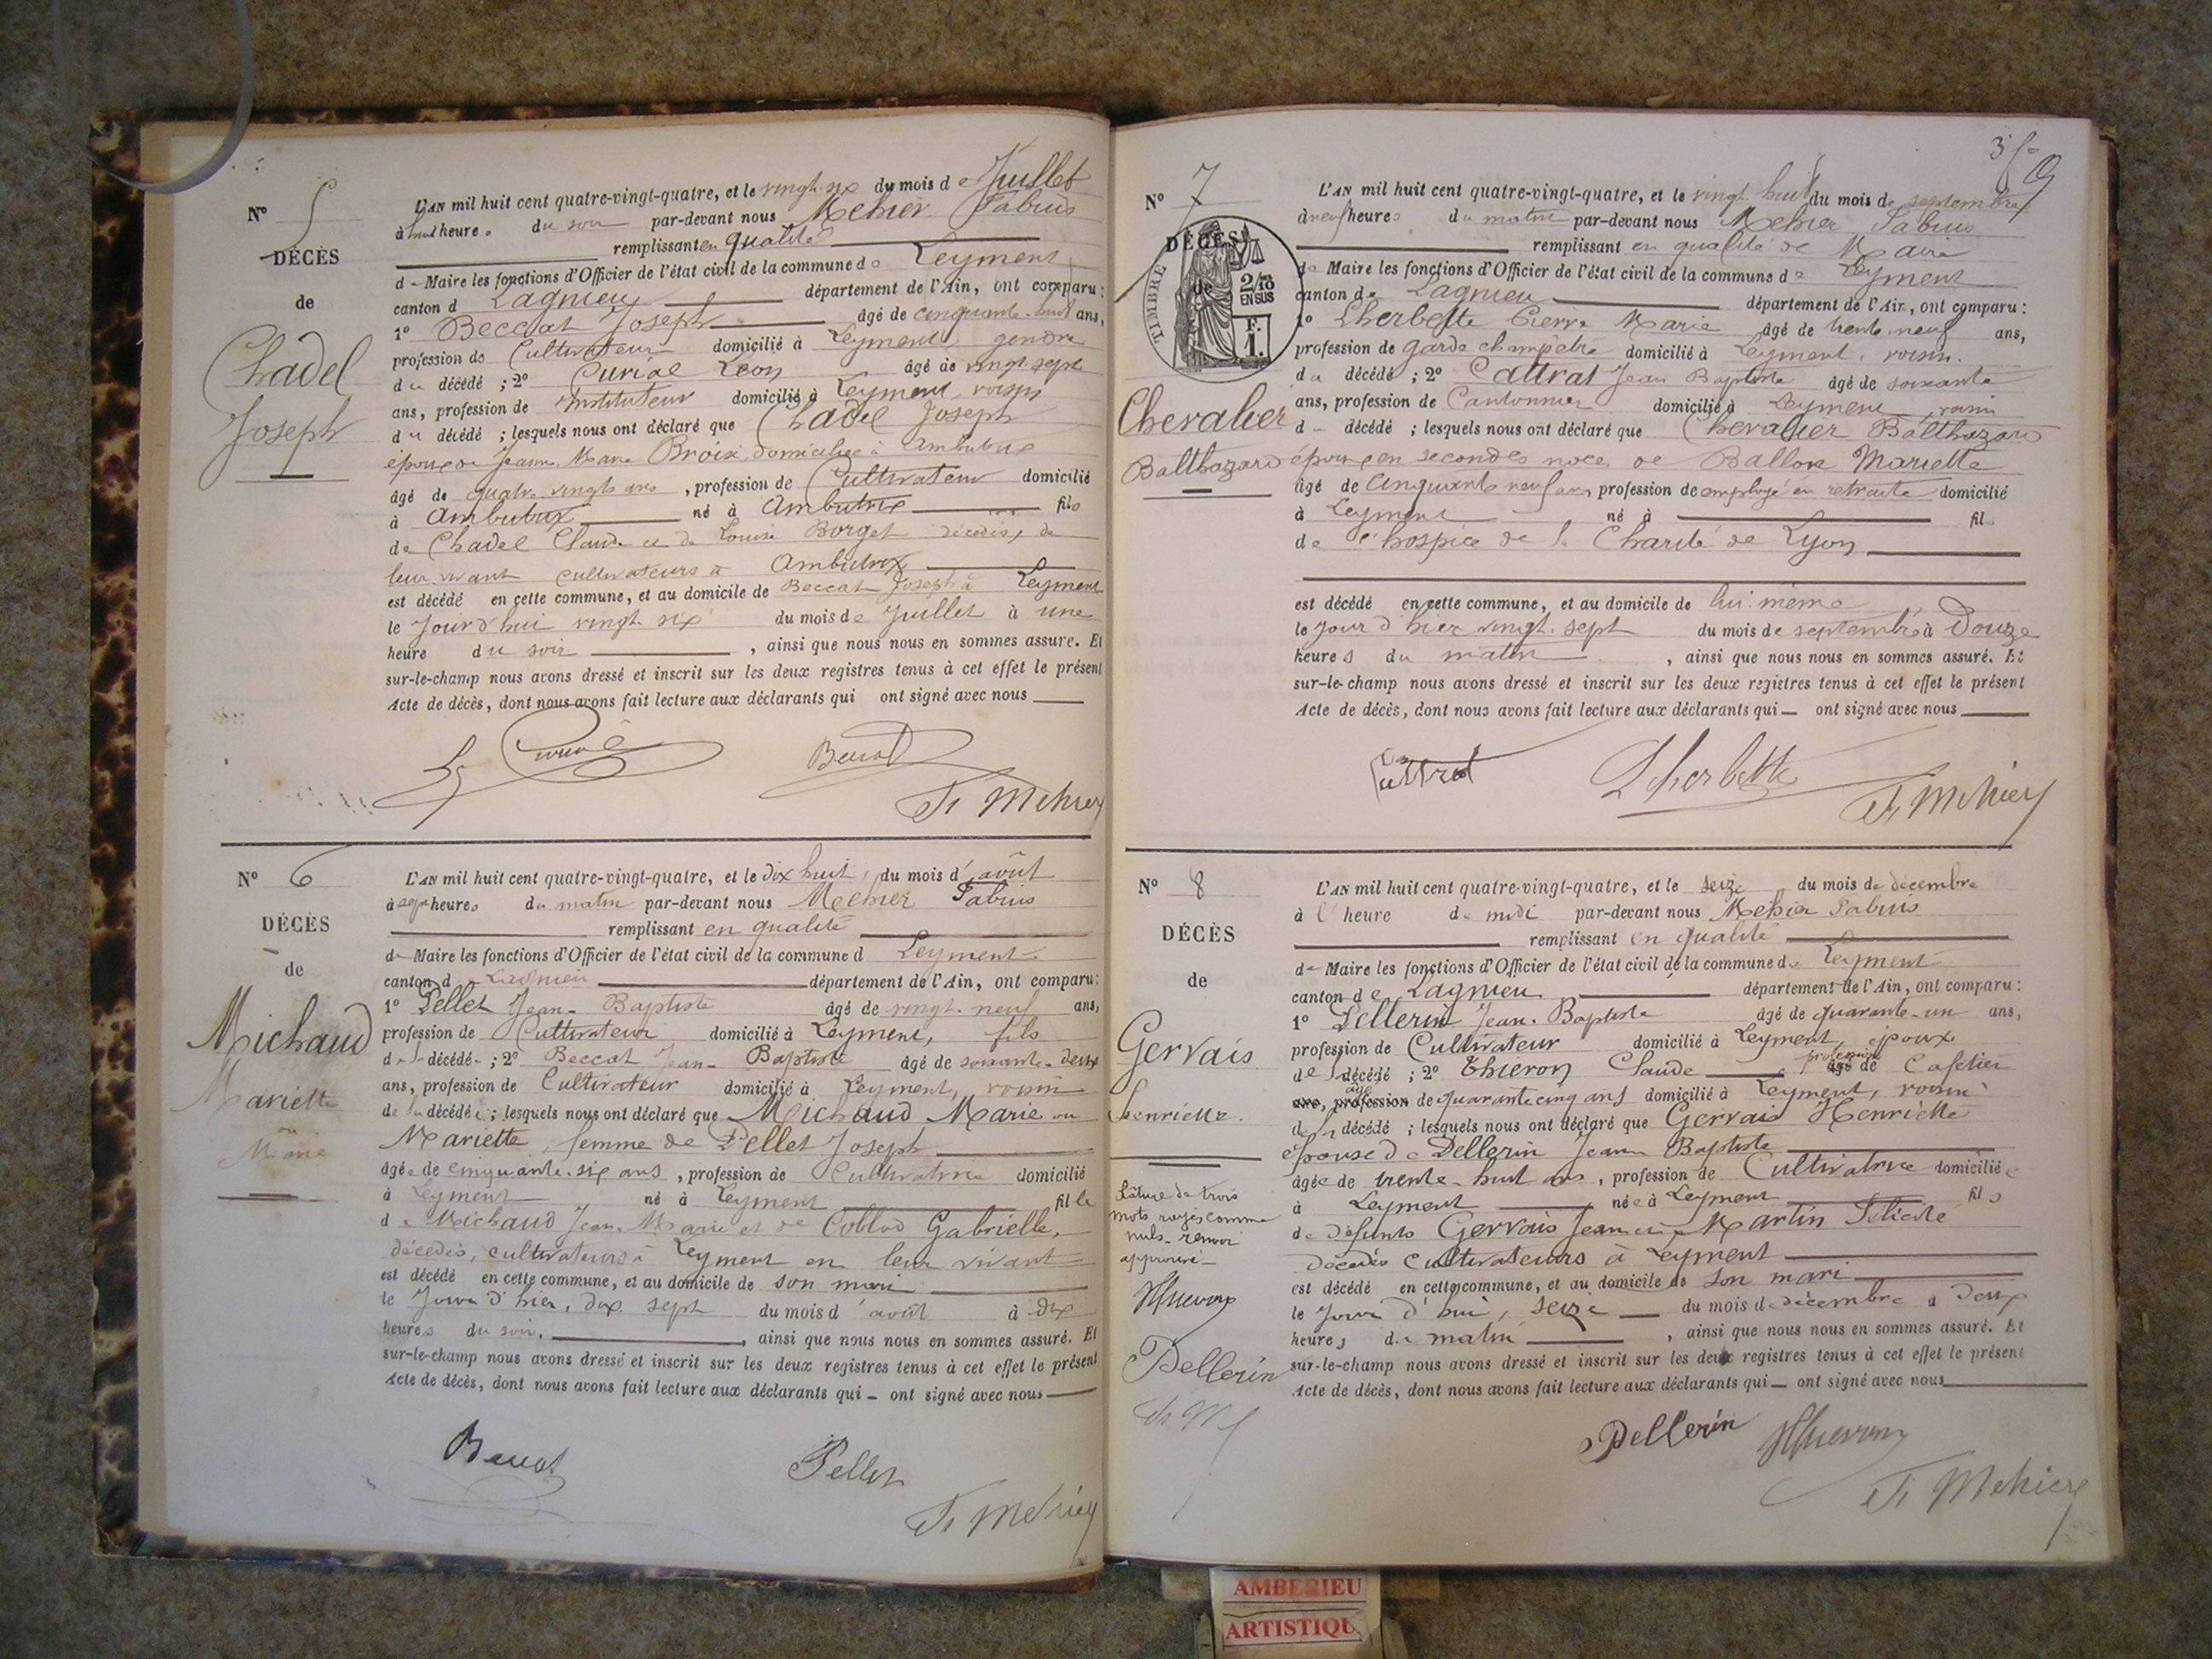 Nº 5
DÉCÈS
de
Chadel
Joseph
L'AN mil huit cent quatre-vingt-quatre, et le vingt-six du mois de Juillet
à huit heures du soir par-devant nous Mehier Fabius
remplissant en qualité
de Maire les fonctions d'Officier de l'état civil de la commune de Leyment
canton de Lagnieu département de l'Ain, ont comparu :
1º Beccat Joseph âgé de cinquante-huit ans,
profession de Cultivateur domicilié à Leyment, gendre
du décédé ; 2º Curial Léon âgé de vingt sept
ans, profession de Instituteur domicilié à Leyment, voisin
du décédé ; lesquels nous ont déclaré que Chadel Joseph
époux de Jeanne Marie Broix, domicilié à Ambutrix
âgé de quatre vingts ans, profession de Cultivateur domicilié
à Ambutrix né à Ambutrix fils
de Chadel Claude et de Louise Borget décédés, de
leur vivant cultivateurs à Ambutrix
est décédé en cette commune, et au domicile de Beccat Joseph à Leyment
le Jour d'hui vingt-six du mois de Juillet à une
heure du soir, ainsi que nous nous en sommes assuré. Et
sur-le-champ nous avons dressé et inscrit sur les deux registres tenus à cet effet le présent
Acte de décès, dont nous avons fait lecture aux déclarants qui ont signé avec nous
L Curial Beccat
Fs Mehier
Nº 6
DÉCÈS
de
Michaud
Mariette
ou
Marie
L'AN mil huit cent quatre-vingt-quatre, et le dix huit, du mois d'août
à sept heures du matin par-devant nous Mehier Fabius
remplissant en qualité
de Maire les fonctions d'Officier de l'état civil de la commune d Leyment
canton de Lagnieu département de l'Ain, ont comparu :
1º Pellet Jean-Baptiste âgé de vingt-neuf ans,
profession de Cultivateur domicilié à Leyment, fils
de la décédée ; 2º Beccat Jean-Baptiste âgé de soixante-deux
ans, profession de Cultivateur domicilié à Leyment, voisin
de la décédée ; lesquels nous ont déclaré que Michaud Marie ou
Mariette, femme de Pellet Joseph
âgée de cinquante-six ans, profession de Cultivatrice domicilié
à Leyment né à Leyment fille
de Michaud Jean-Marie et de Collod Gabrielle,
décédés, cultivateurs à Leyment en leur vivant
est décédé en cette commune, et au domicile de son mari
le Jour d'hier, dix sept du mois d'août à dix
heures du soir, ainsi que nous nous en sommes assuré. Et
sur-le-champ nous avons dressé et inscrit sur les deux registres tenus à cet effet le présent
Acte de décès, dont nous avons fait lecture aux déclarants qui ont signé avec nous
Beccat Pellet
Fs Mehier
Nº 7
DÉCÈS
de
TIMBRE
2/10
EN SUS
F.
1.
Chevalier
Balthazard
L'AN mil huit cent quatre-vingt-quatre, et le vingt huit du mois de septembre
à neuf heures du matin par-devant nous Mehier Fabius
remplissant en qualité de Maire
de Maire les fonctions d'Officier de l'état civil de la commune de Leyment
canton de Lagnieu département de l'Ain, ont comparu :
1º Lherbette Pierre Marie âgé de trente-neuf ans,
profession de garde champêtre domicilié à Leyment, voisin.
du décédé ; 2º Cattrat Jean Baptiste âgé de soixante
ans, profession de Cantonnier domicilié à Leyment, voisin
d décédé ; lesquels nous ont déclaré que Chevalier Balthazard
époux en secondes noces de Ballon Mariette
âgé de Cinquante neuf ans, profession de employé en retraite domicilié
à Leyment né à fils
de l'hospice de la Charité de Lyon
est décédé en cette commune, et au domicile de lui même
le Jour d'hier vingt-sept du mois de septembre à Douze
heures du matin, ainsi que nous nous en sommes assuré. Et
sur-le-champ nous avons dressé et inscrit sur les deux registres tenus à cet effet le présent
Acte de décès, dont nous avons fait lecture aux déclarants qui ont signé avec nous
Cattrat Lherbette
Fs Mehier
Nº 8
DÉCÈS
de
Gervais
Henriette.
L'AN mil huit cent quatre-vingt-quatre, et le seize du mois de décembre
à l'heure de midi par-devant nous Mehier Fabius
remplissant en qualité
de Maire les fonctions d'Officier de l'état civil de la commune de Leyment
canton de Lagnieu département de l'Ain, ont comparu :
1º Pellerin Jean-Baptiste âgé de quarante-un ans,
profession de Cultivateur domicilié à Leyment, époux
de la décédé ; 2º Thievon Claude profession âgé de Cafetier
âgé ans, profession de quarante cinq ans domicilié à Leyment, voisin
de la décédé ; lesquels nous ont déclaré que Gervais Henriette
épouse de Pellerin Jean Baptiste
âgée de trente-huit ans, profession de Cultivatrice domiciliée
à Leyment née à Leyment fil
de défunts Gervais Jean et de Martin Félicité
décédés Cultivateurs à Leyment
est décédé en cette commune, et au domicile de son mari
le Jour d'hui, seize du mois de décembre à deux
heures du matin, ainsi que nous nous en sommes assuré. Et
sur-le-champ nous avons dressé et inscrit sur les deux registres tenus à cet effet le présent
Acte de décès, dont nous avons fait lecture aux déclarants qui ont signé avec nous
Rature de trois
mots rayés comme
nuls-renvoi
approuvé
Thievon
Pellerin
Fs M
Pellerin Thievon
Fs Mehier
AMBERIEU
ARTISTIQU